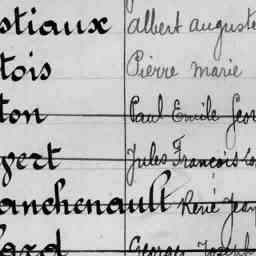 stiaux albert auguste
tois Pierre Marie
ton Paul Emile Geor
pert Jules François Co
anchenault René Jean
Georges Joseph